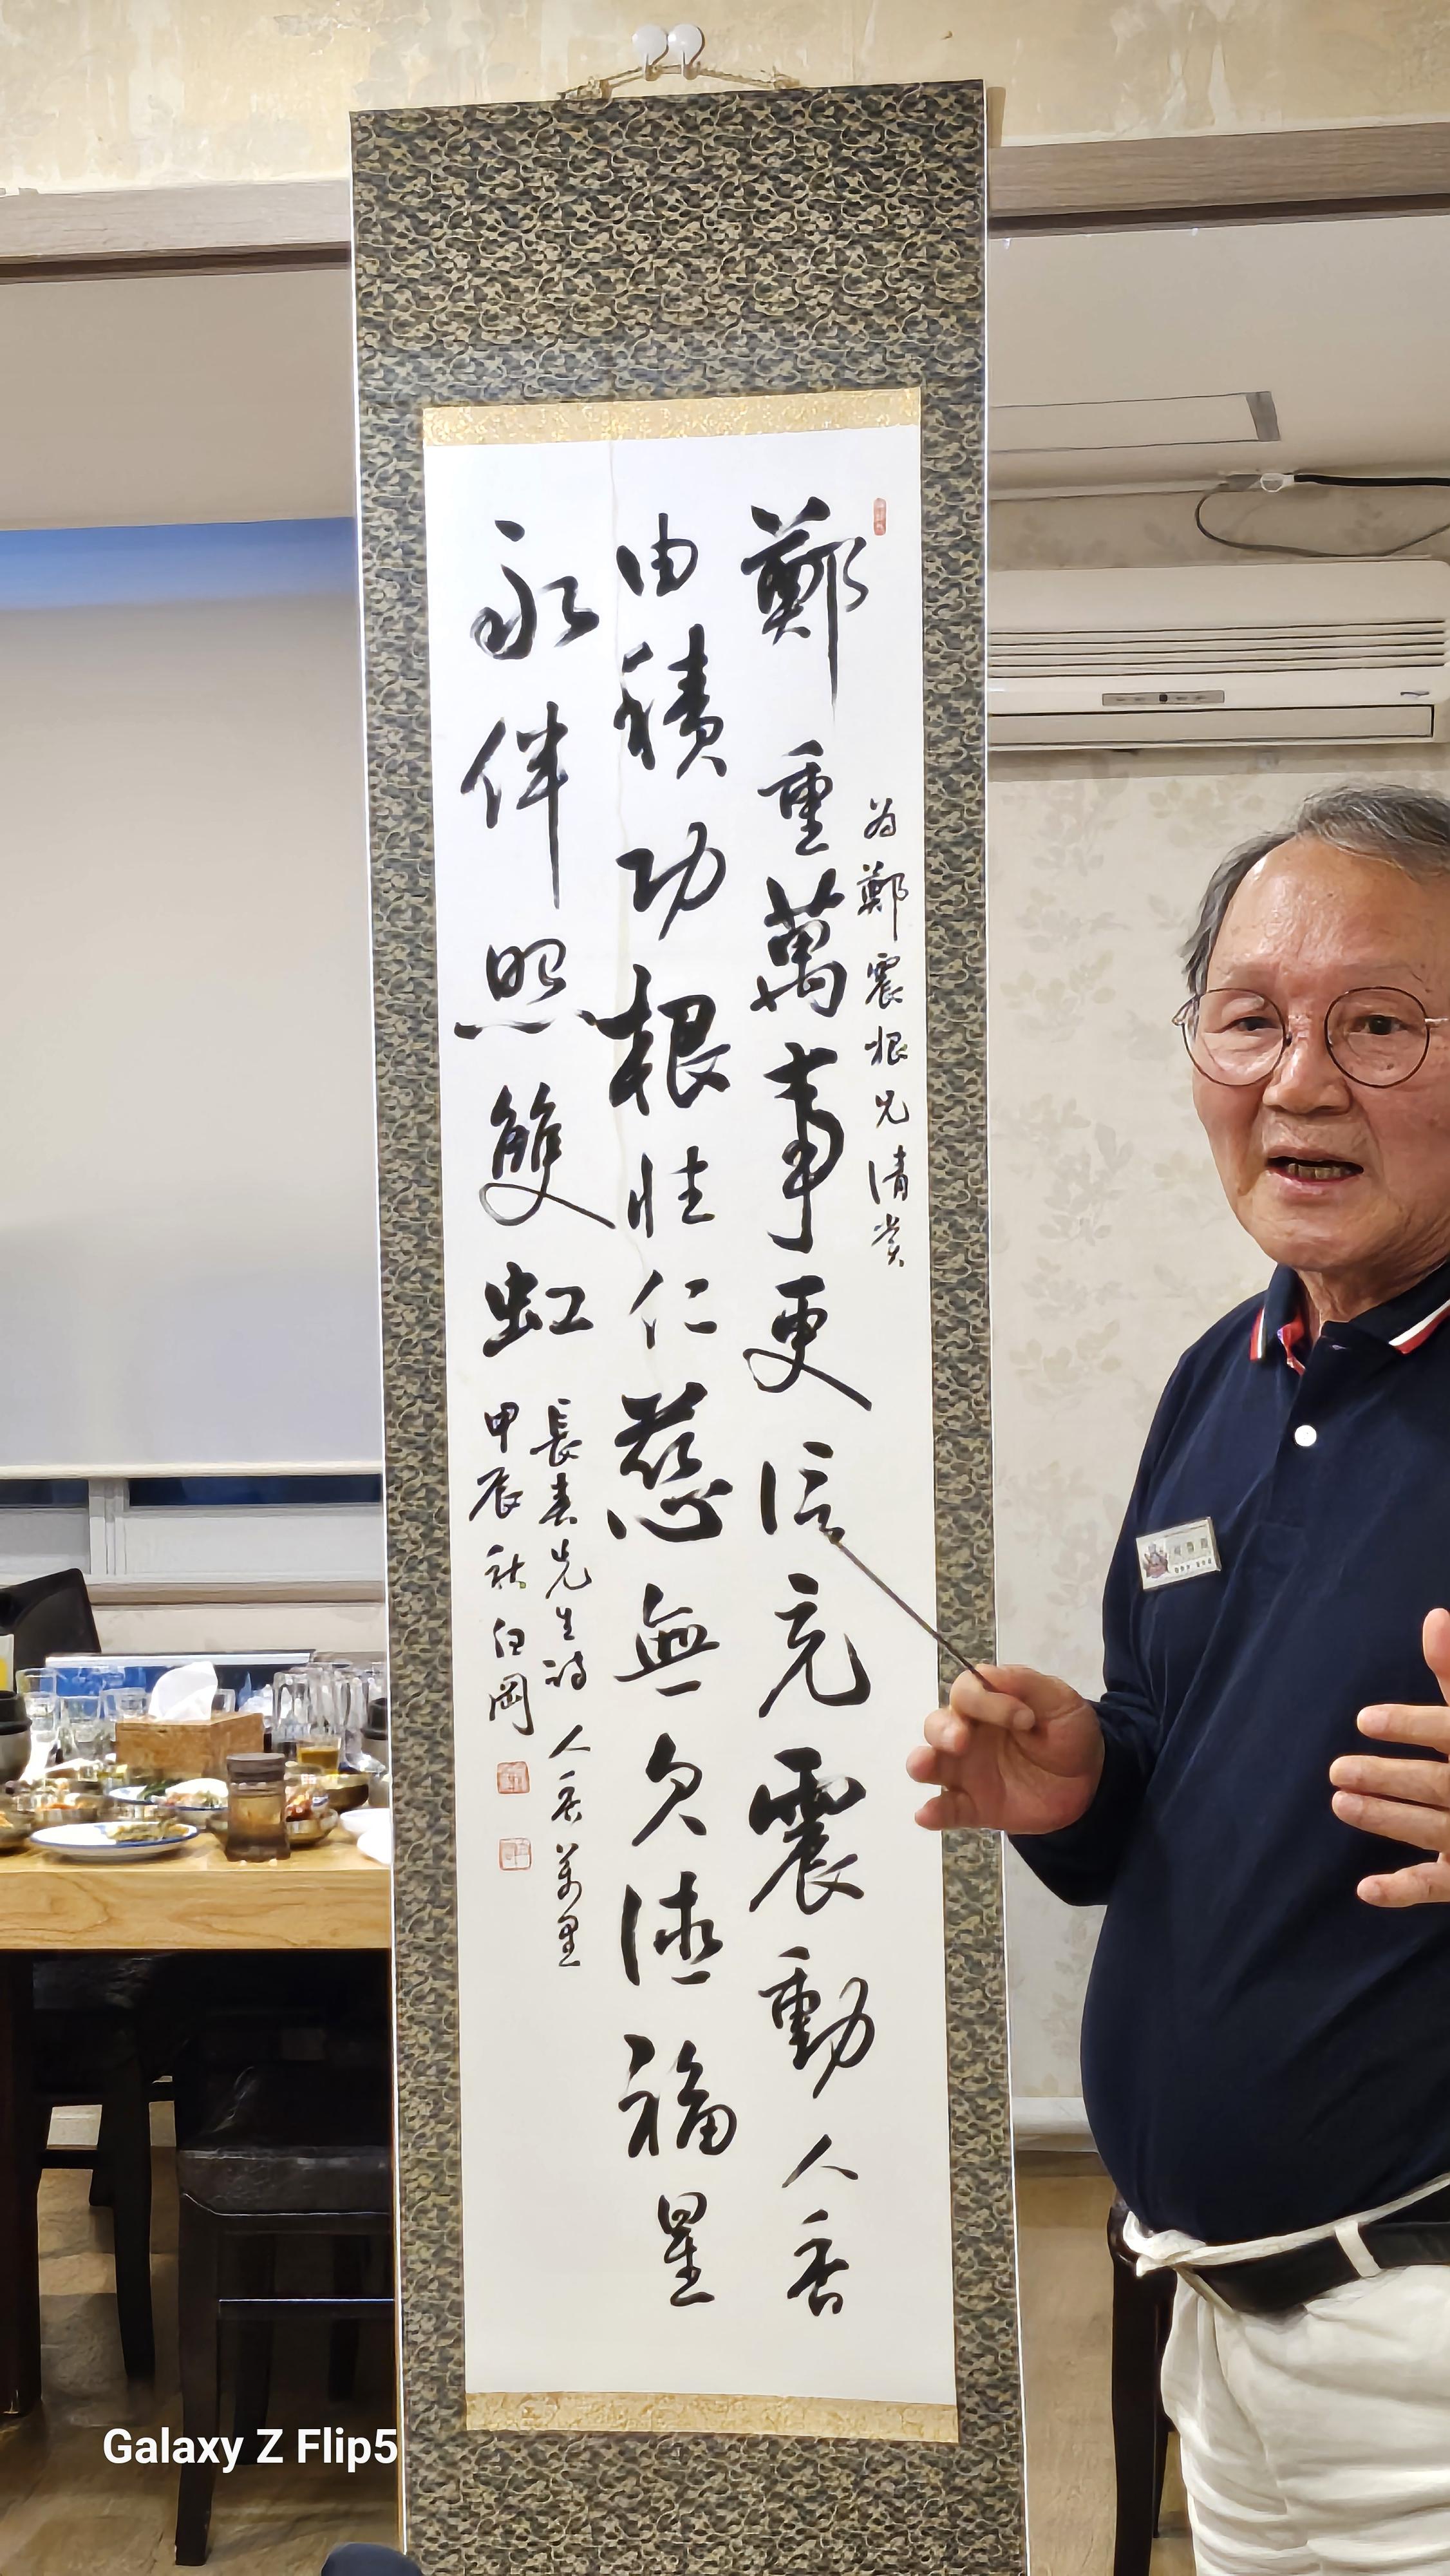 為鄭震根兄清賞
鄭重萬事更信充震動人香
由積功根性仁慈無欠德福星
永伴照雙虹
長春先生詩 人香萬里
甲辰秋 白岡
Galaxy Z Flip5